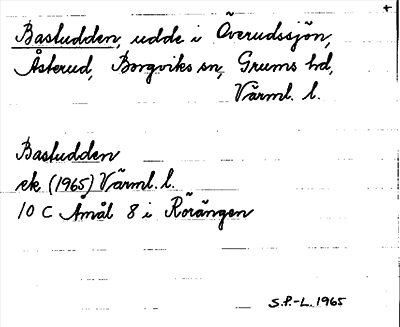 Basludden, udde i Överudssjön,
Åsterud, Borgviks sn, Grums hd,
Värml. l.
Basludden
ek (1965) Värml. l.
10 C Åmål 8 i Rörängen
S.P.-L. 1965